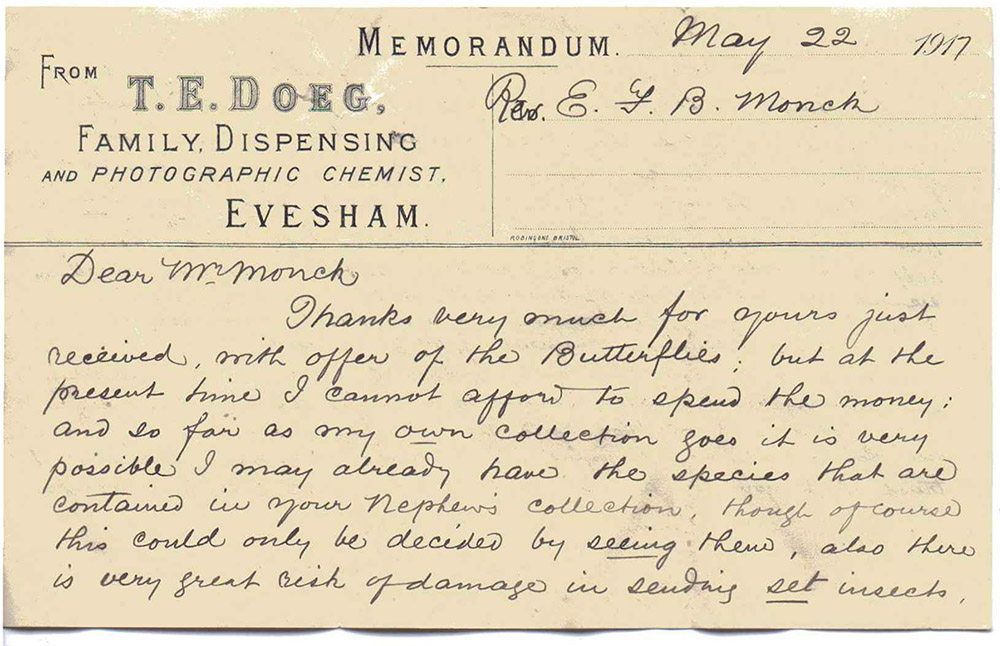 MEMORANDUM. May 22 1917
FROM
T. E. DOEG,
Rev. E. F. B. Monck
FAMILY, DISPENSING
AND PHOTOGRAPHIC CHEMIST,
EVESHAM.
ROBINSONS BRISTOL
Dear Mr Monck
Thanks very much for yours just
received, with offer of the Butterflies; but at the
present time I cannot afford to spend the money;
and so far as my own collection goes it is very
possible I may already have the species that are
contained in your Nephews collection, though of course
this could only be decided by seeing them, also there
is very great risk of damage in sending set insects,